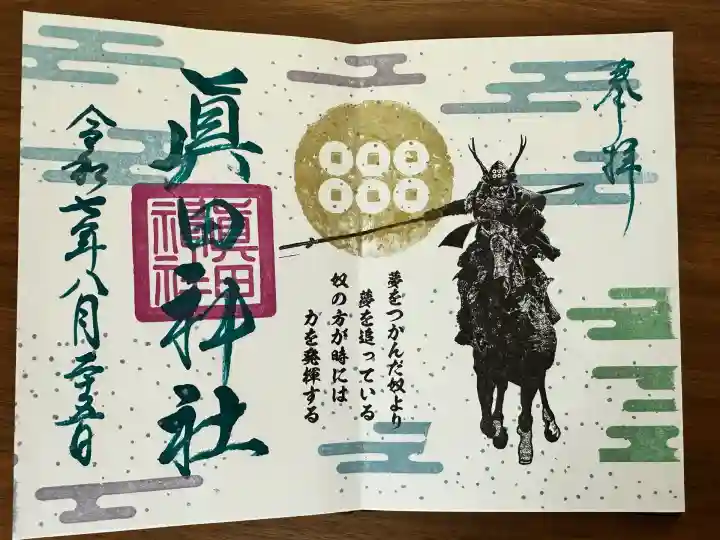 奉拝
夢をつかんだ奴より
夢を追っている
奴の方が時には
力を発揮する
眞田神社
眞田
神社
令和七年八月二十五日